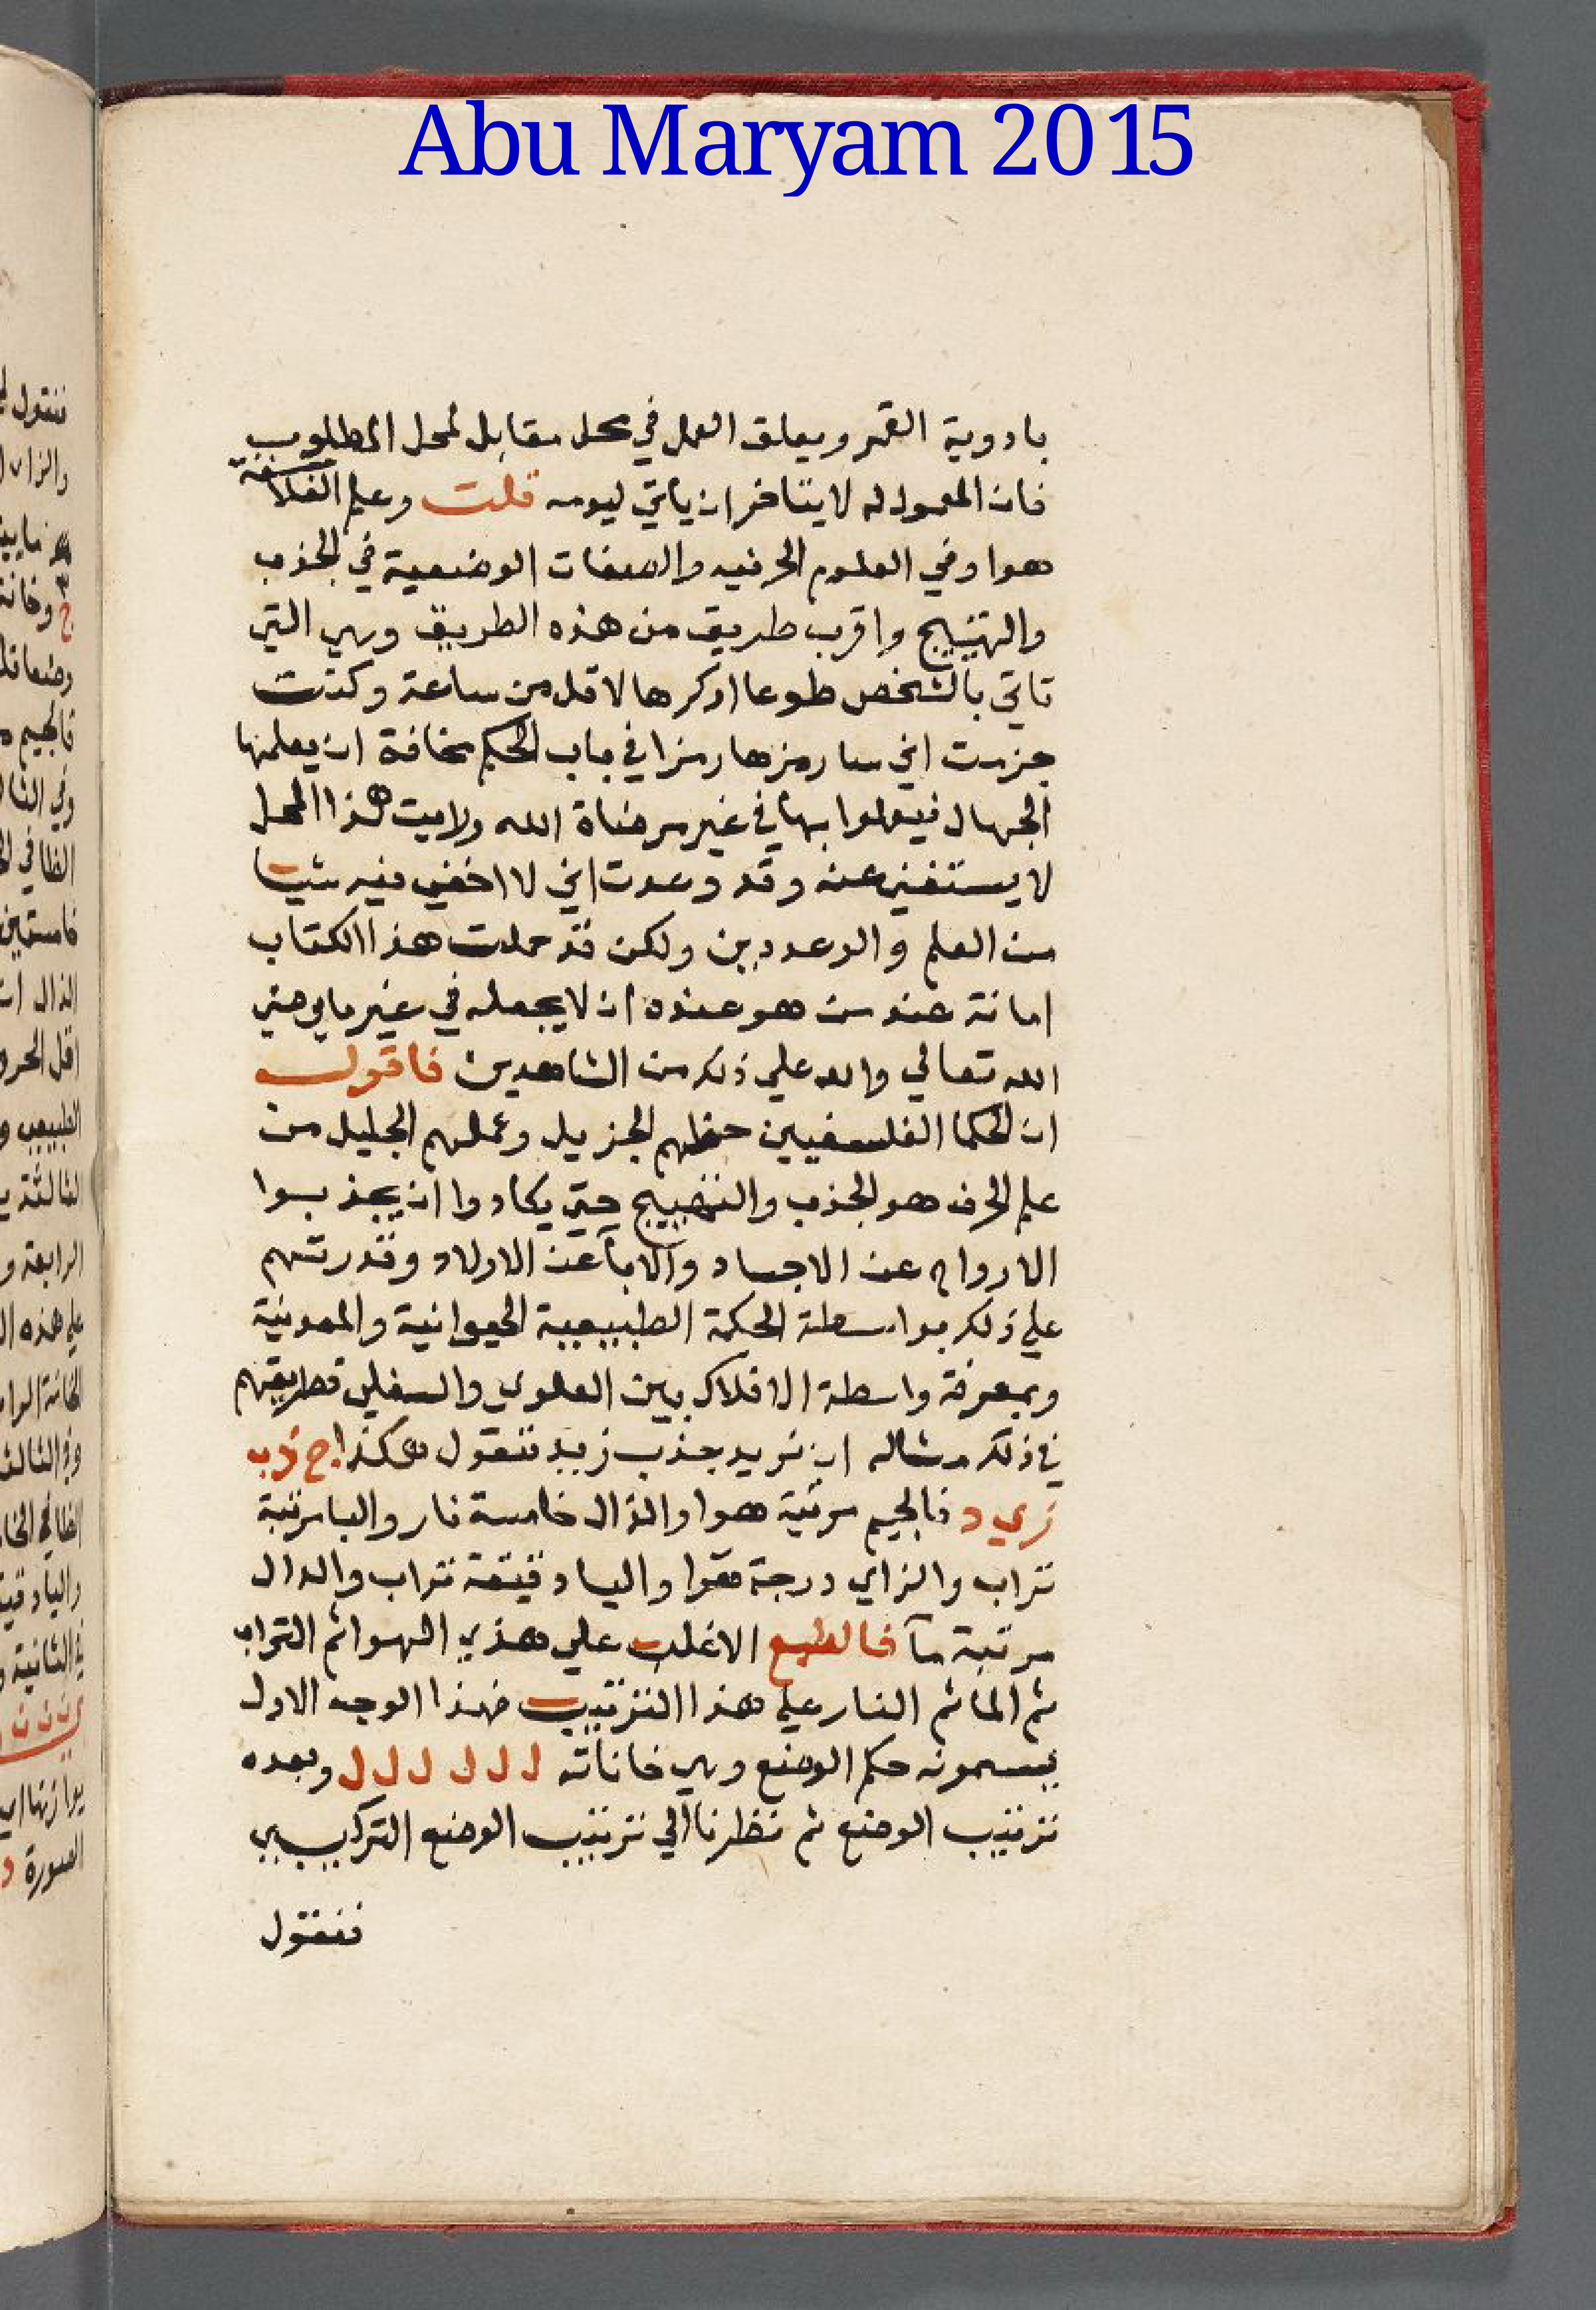 Abu Maryam 2015
بادوية القمر ويعلق العمل في محل مقابل لمحل المطلوب
فان المعمول له لا يتاخر ان ياتي ليومه قلت وعلم الفلاسفة
هوا وفي العلوم الحرفيه والصفات الوضعية في الجذب
والتهييج واقرب طريق من هذه الطريق وهي التي
تاتي بالشخص طوعا او كرها لاقل من ساعة وكنت
جزمت اني سارمزها رمزا في باب الحكم مخافة ان يعلمها
الجهال فيعملوا بها في غير مرضاة الله ورايت هذا المحل
لا يستغني عنه وقد وعدت اني لا اخفي فيه شيا
من العلم والوعد دين ولكن قد جعلت هذا الكتاب
امانة عند من هو عنده ان لا يجعله في غير ما يرضي
الله تعالي والله علي ذلك من الشاهدين فاقول
ان الحكما الفلسفيين حظهم الجزيل وعملهم الجليل من
علم الحرف هو الجذب والتهييج حتي يكادوا ان يجذبوا
الارواح عن الاجساد والابآ عن الاولاد وقدرتهم
علي ذلك بواسطة الحكمة الطبيعية الحيوانية والمعدنية
وبمعرفة واسطة الافلاك بين العلوي والسفلي فطريقهم
في ذلك مثاله ان نريد جذب زيد فنقول هكذا ج ذ ب
ز ي د فالجيم مرتبة هوا والذال خامسة نار والبا مرتبة
تراب والزاي درجة هوا واليا دقيقة تراب والدال
مرتبة مآ فالطبع الاغلب علي هذه الهوا ثم التراب
ثم الما ثم النار علي هذا الترتيب فهذا الوجه الاول
يسمونه حكم الوضع وهي خاناته ل ل ل ل ل ل وبعده
ترتيب الوضع ثم نظرنا الي ترتيب الوضع التركيبي
فنقول